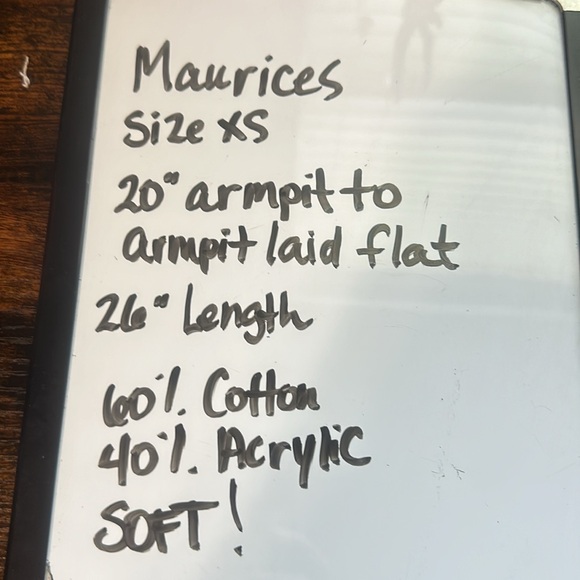 Maurices
Size XS
20" armpit to
armpit laid flat
26" Length
60%. Cotton
40%. Acrylic
SOFT!